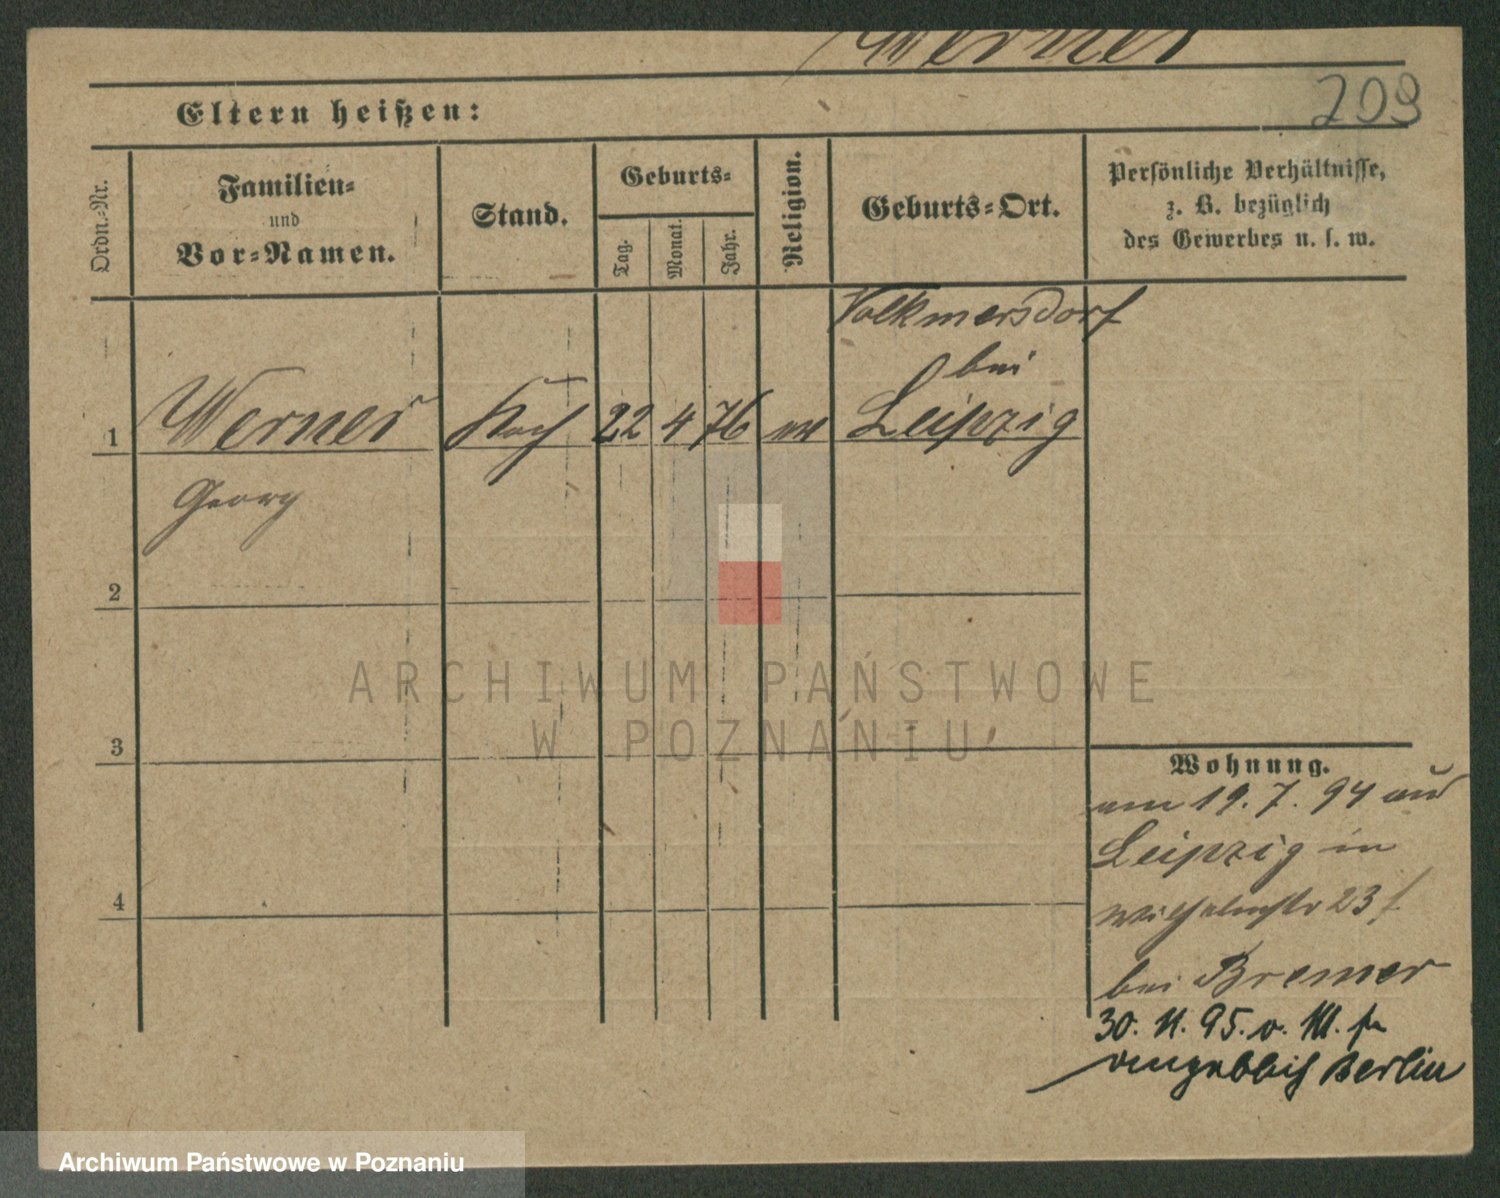 Werner
209
Eltern heißen:
Ordn.-Nr.
Familien-
und
Vor-Namen.
Stand.
Geburts-
Tag.
Monat.
Jahr.
Religion.
Geburts-Ort.
Persönliche Verhältnisse,
z. B. bezüglich
des Gewerbes u. s. w.
Volkmersdorf
bei
1 Werner Koch 22 4 76 ev Leipzig
Georg
2
3
4
ARCHIWUM PAŃSTWOWE
W POZNANIU
Wohnung.
am 19. 7. 94 aus
Leipzig in
Wilhelmstr 23
bei Bremer
30. 11. 95. v. III.
angeblich Berlin
Archiwum Państwowe w Poznaniu